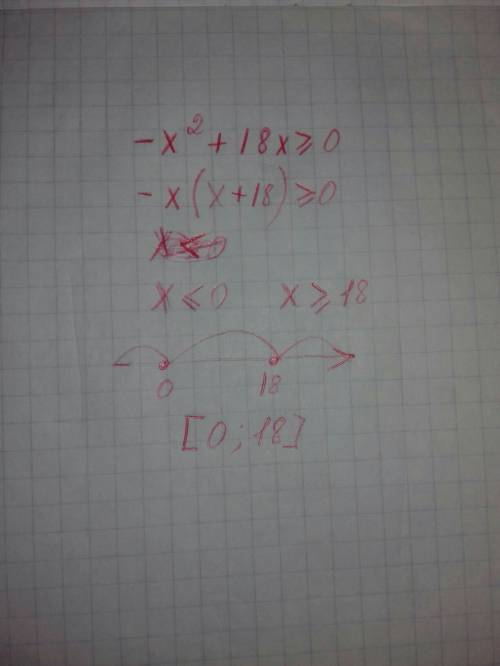 -x² + 18x ≥ 0
-x(x+18) ≥ 0
x ≤ 0 x ≥ 18
0 18
[0; 18]